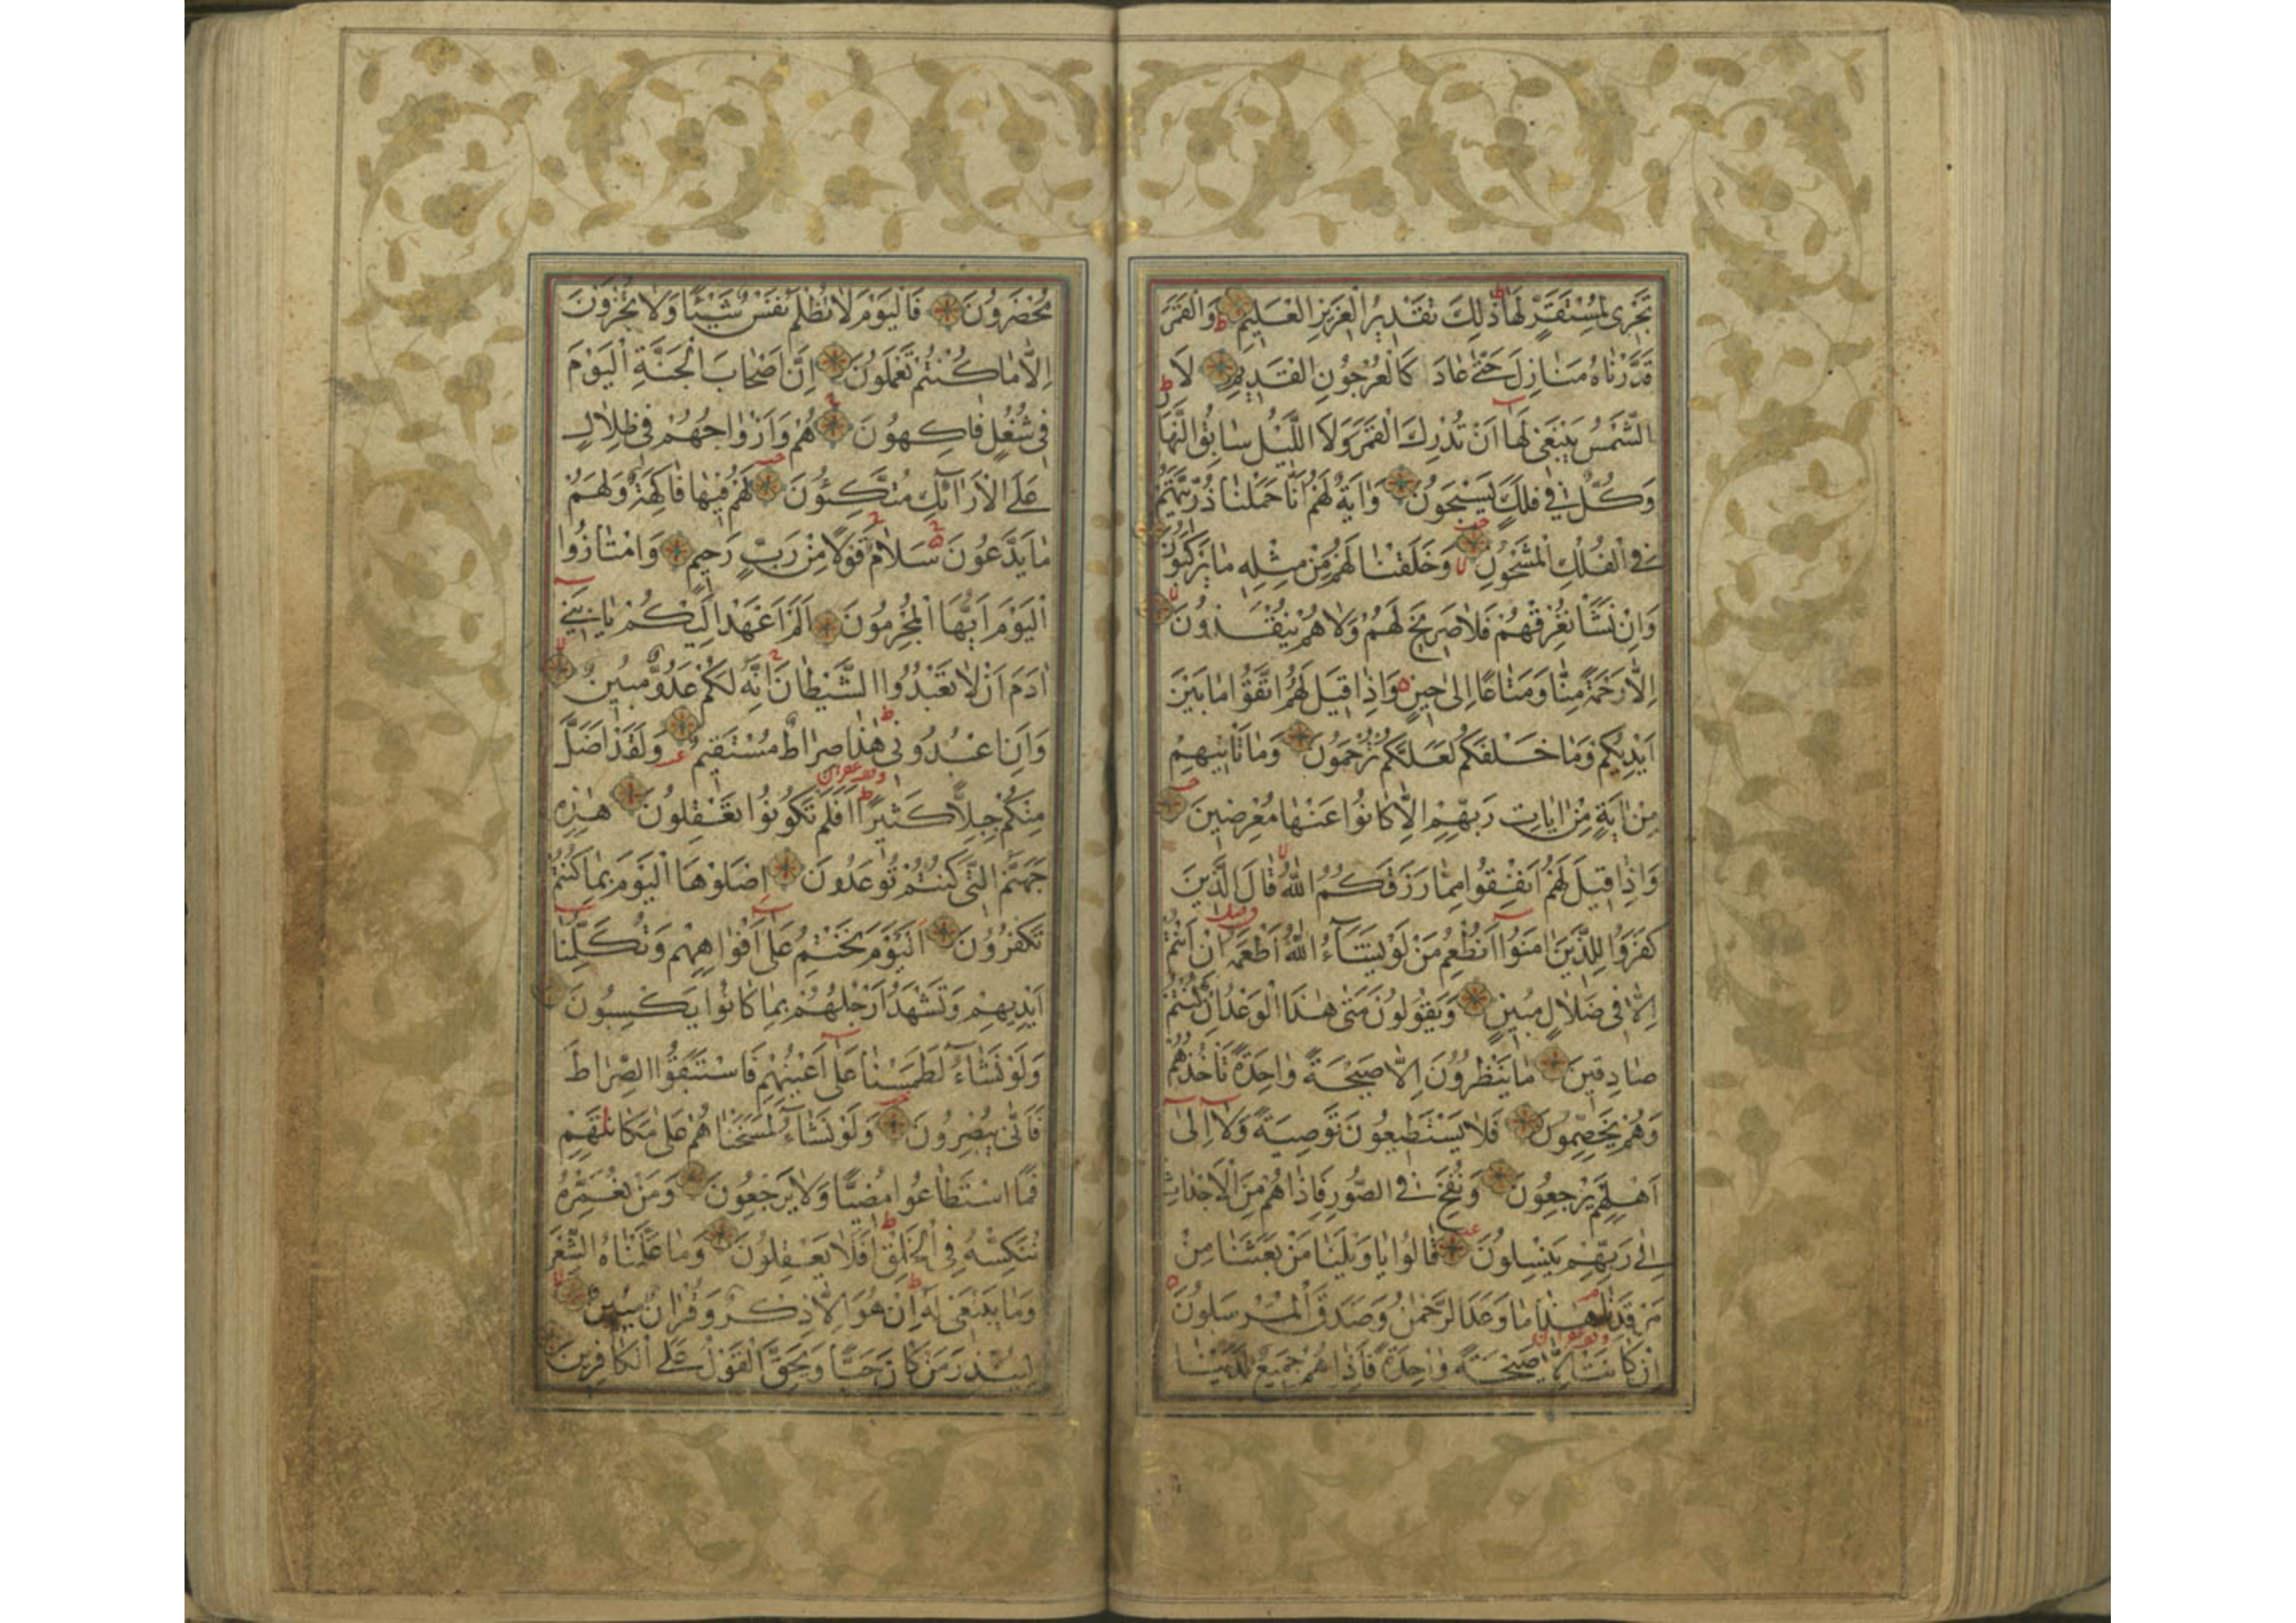 تَجْرِى لِمُسْتَقَرٍّ لَهَا ذٰلِكَ تَقْدِيرُ الْعَزِيزِ الْعَلِيمِ وَالْقَمَرَ
قَدَّرْنَاهُ مَنَازِلَ حَتّٰى عَادَ كَالْعُرْجُونِ الْقَدِيمِ لَا
الشَّمْسُ يَنْبَغِى لَهَا اَنْ تُدْرِكَ الْقَمَرَ وَلَا اللَّيْلُ سَابِقُ النَّهَا
وَكُلٌّ فِى فَلَكٍ يَسْبَحُونَ وَاٰيَةٌ لَهُمْ اَنَّا حَمَلْنَا ذُرِّيَّتَهُمْ
فِى الْفُلْكِ الْمَشْحُونِ وَخَلَقْنَا لَهُمْ مِنْ مِثْلِهِ مَا يَرْكَبُونَ
وَاِنْ نَشَأْ نُغْرِقْهُمْ فَلَا صَرِيخَ لَهُمْ وَلَا هُمْ يُنْقَذُونَ
اِلَّا رَحْمَةً مِنَّا وَمَتَاعًا اِلٰى حِينٍ وَاِذَا قِيلَ لَهُمُ اتَّقُوا مَا بَيْنَ
اَيْدِيكُمْ وَمَا خَلْفَكُمْ لَعَلَّكُمْ تُرْحَمُونَ وَمَا تَأْتِيهِمْ
مِنْ اٰيَةٍ مِنْ اٰيَاتِ رَبِّهِمْ اِلَّا كَانُوا عَنْهَا مُعْرِضِينَ
وَاِذَا قِيلَ لَهُمْ اَنْفِقُوا مِمَّا رَزَقَكُمُ اللّٰهُ قَالَ الَّذِينَ
كَفَرُوا لِلَّذِينَ اٰمَنُوا اَنُطْعِمُ مَنْ لَوْ يَشَاءُ اللّٰهُ اَطْعَمَهُ اِنْ اَنْتُمْ
اِلَّا فِى ضَلَالٍ مُبِينٍ وَيَقُولُونَ مَتٰى هٰذَا الْوَعْدُ اِنْ كُنْتُمْ
صَادِقِينَ مَا يَنْظُرُونَ اِلَّا صَيْحَةً وَاحِدَةً تَأْخُذُهُمْ
وَهُمْ يَخِصِّمُونَ فَلَا يَسْتَطِيعُونَ تَوْصِيَةً وَلَا اِلٰى
اَهْلِهِمْ يَرْجِعُونَ وَنُفِخَ فِى الصُّورِ فَاِذَا هُمْ مِنَ الْاَجْدَاثِ
اِلٰى رَبِّهِمْ يَنْسِلُونَ قَالُوا يَا وَيْلَنَا مَنْ بَعَثَنَا مِنْ
مَرْقَدِنَا هٰذَا مَا وَعَدَ الرَّحْمٰنُ وَصَدَقَ الْمُرْسَلُونَ
اِنْ كَانَتْ اِلَّا صَيْحَةً وَاحِدَةً فَاِذَا هُمْ جَمِيعٌ لَدَيْنَا
مُحْضَرُونَ فَالْيَوْمَ لَا تُظْلَمُ نَفْسٌ شَيْئًا وَلَا تُجْزَوْنَ
اِلَّا مَا كُنْتُمْ تَعْمَلُونَ اِنَّ اَصْحَابَ الْجَنَّةِ الْيَوْمَ
فِى شُغُلٍ فَاكِهُونَ هُمْ وَاَزْوَاجُهُمْ فِى ظِلَالٍ
عَلَى الْاَرَائِكِ مُتَّكِئُونَ لَهُمْ فِيهَا فَاكِهَةٌ وَلَهُمْ
مَا يَدَّعُونَ سَلَامٌ قَوْلًا مِنْ رَبٍّ رَحِيمٍ وَامْتَازُوا
الْيَوْمَ اَيُّهَا الْمُجْرِمُونَ اَلَمْ اَعْهَدْ اِلَيْكُمْ يَا بَنِى
اٰدَمَ اَنْ لَا تَعْبُدُوا الشَّيْطَانَ اِنَّهُ لَكُمْ عَدُوٌّ مُبِينٌ
وَاَنِ اعْبُدُونِى هٰذَا صِرَاطٌ مُسْتَقِيمٌ وَلَقَدْ اَضَلَّ
مِنْكُمْ جِبِلًّا كَثِيرًا اَفَلَمْ تَكُونُوا تَعْقِلُونَ هٰذِهِ
جَهَنَّمُ الَّتِى كُنْتُمْ تُوعَدُونَ اِصْلَوْهَا الْيَوْمَ بِمَا كُنْتُمْ
تَكْفُرُونَ اَلْيَوْمَ نَخْتِمُ عَلٰى اَفْوَاهِهِمْ وَتُكَلِّمُنَا
اَيْدِيهِمْ وَتَشْهَدُ اَرْجُلُهُمْ بِمَا كَانُوا يَكْسِبُونَ
وَلَوْ نَشَاءُ لَطَمَسْنَا عَلٰى اَعْيُنِهِمْ فَاسْتَبَقُوا الصِّرَاطَ
فَاَنّٰى يُبْصِرُونَ وَلَوْ نَشَاءُ لَمَسَخْنَاهُمْ عَلٰى مَكَانَتِهِمْ
فَمَا اسْتَطَاعُوا مُضِيًّا وَلَا يَرْجِعُونَ وَمَنْ نُعَمِّرْهُ
نُنَكِّسْهُ فِى الْخَلْقِ اَفَلَا يَعْقِلُونَ وَمَا عَلَّمْنَاهُ الشِّعْرَ
وَمَا يَنْبَغِى لَهُ اِنْ هُوَ اِلَّا ذِكْرٌ وَقُرْاٰنٌ مُبِينٌ
لِيُنْذِرَ مَنْ كَانَ حَيًّا وَيَحِقَّ الْقَوْلُ عَلَى الْكَافِرِينَ